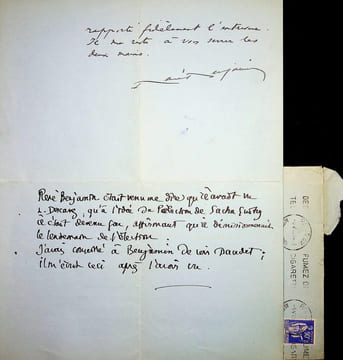 rapporté fidèlement l'entrevue.
Il me reste à vous serrer les
deux mains.
René Benjamin
René Benjamin était venu me dire qu'il avait vu
L. Descaves, qu'à l'idée de l'élection de Sacha Guitry
il était devenu fou, affirmant qu'il démissionnerait
le lendemain de l'élection.
J'avais conseillé à Benjamin de voir Daudet ;
il m'écrit ceci après l'avoir vu.
FUMEZ